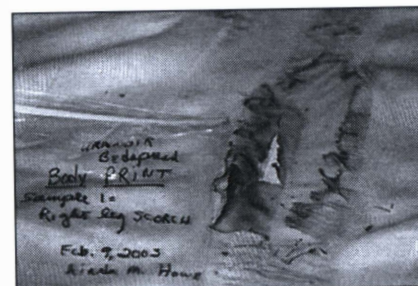 URANDIR
Bedspread
Body PRINT
Sample 1:
Right leg SCORCH
Feb. 9, 2003
Linda M. Howe